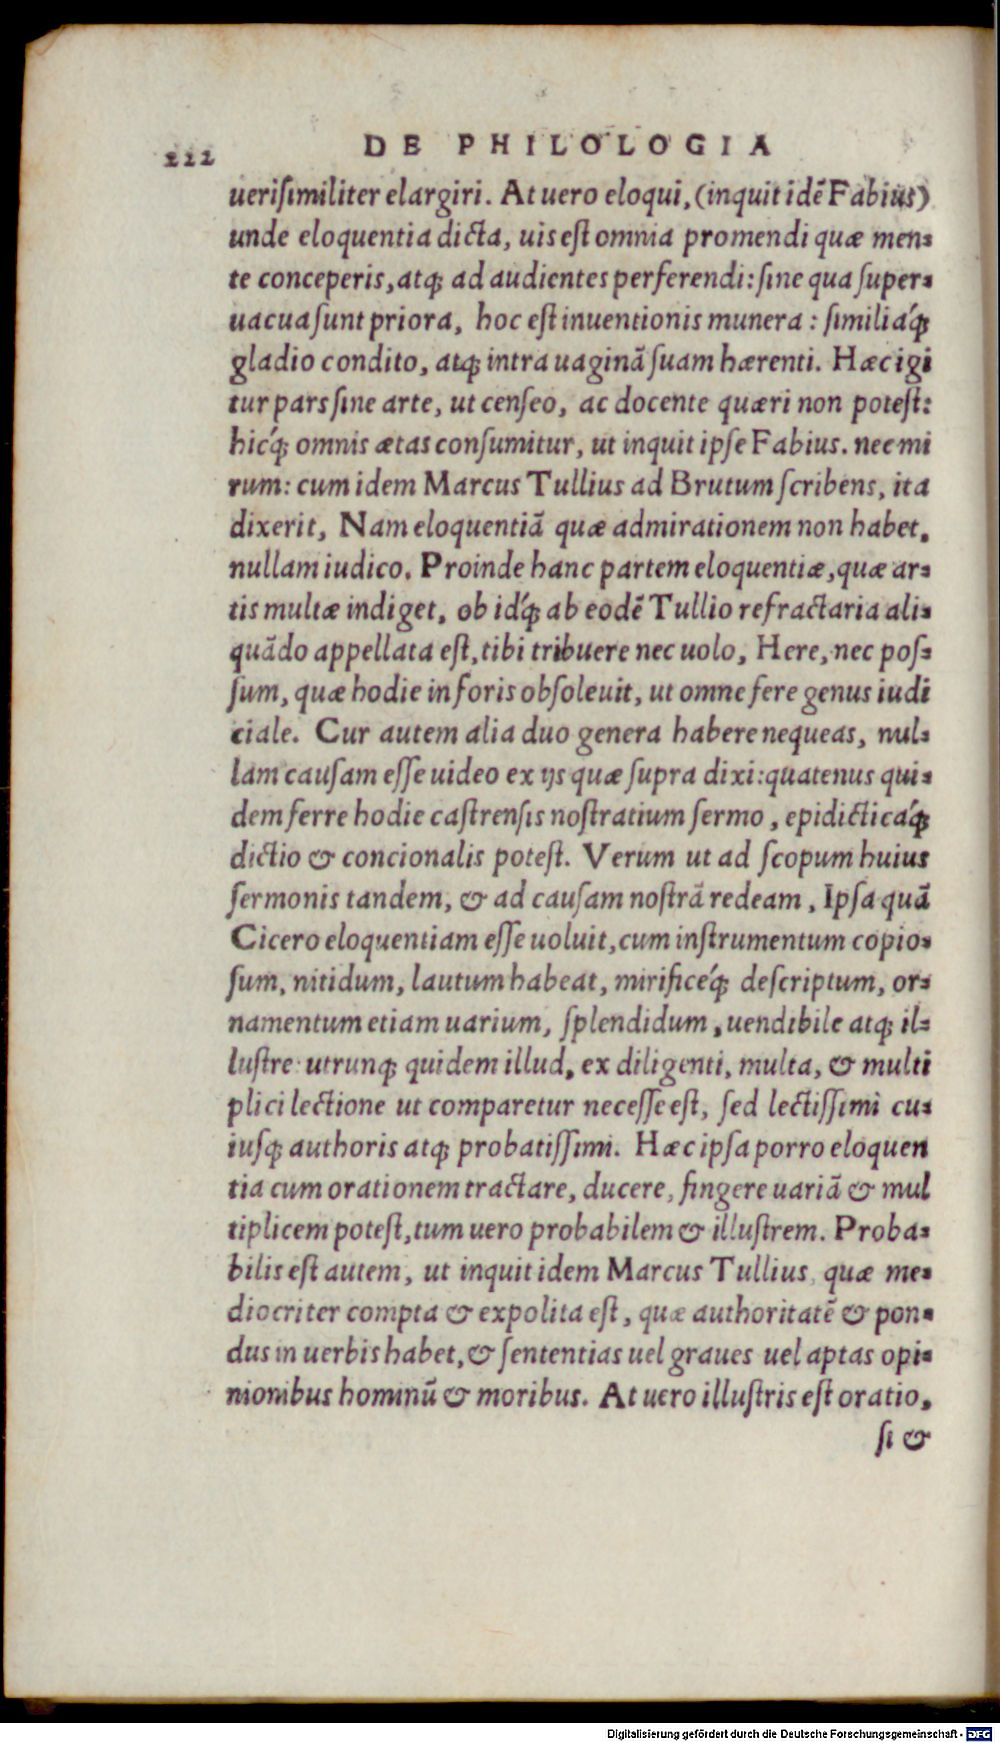 222 DE PHILOLOGIA
uerisimiliter elargiri. At uero eloqui, (inquit idē Fabius)
unde eloquentia dicta, uis est omnia promendi quæ men-
te conceperis, atq; ad audientes perferendi: sine qua super-
uacua sunt priora, hoc est inuentionis munera: similiáq́;
gladio condito, atq; intra uaginā suam hærenti. Hæc igi
tur pars sine arte, ut censeo, ac docente quæri non potest:
hicq́; omnis ætas consumitur, ut inquit ipse Fabius. nec mi
rum: cum idem Marcus Tullius ad Brutum scribens, ita
dixerit, Nam eloquentiā quæ admirationem non habet,
nullam iudico. Proinde hanc partem eloquentiæ, quæ ar-
tis multæ indiget, ob idq́; ab eodē Tullio refractaria ali-
quādo appellata est, tibi tribuere nec uolo, Here, nec pos-
sum, quæ hodie in foris obsoleuit, ut omne fere genus iudi
ciale. Cur autem alia duo genera habere nequeas, nul-
lam causam esse uideo ex ijs quæ supra dixi: quatenus qui-
dem ferre hodie castrensis nostratium sermo, epidicticáq́;
dictio & concionalis potest. Verum ut ad scopum huius
sermonis tandem, & ad causam nostrā redeam, Ipsa quā
Cicero eloquentiam esse uoluit, cum instrumentum copio-
sum, nitidum, lautum habeat, mirificeq́; descriptum, or-
namentum etiam uarium, splendidum, uendibile atq; il-
lustre: utrunq; quidem illud, ex diligenti, multa, & multi
plici lectione ut comparetur necesse est, sed lectissimi cu-
iusq; authoris atq; probatissimi. Hæc ipsa porro eloquen
tia cum orationem tractare, ducere, fingere uariā & mul
tiplicem potest, tum uero probabilem & illustrem. Proba-
bilis est autem, ut inquit idem Marcus Tullius, quæ me-
diocriter compta & expolita est, quæ authoritatē & pon-
dus in uerbis habet, & sententias uel graues uel aptas opi-
nionibus hominū & moribus. At uero illustris est oratio,
si &
Digitalisierung gefördert durch die Deutsche Forschungsgemeinschaft - DFG